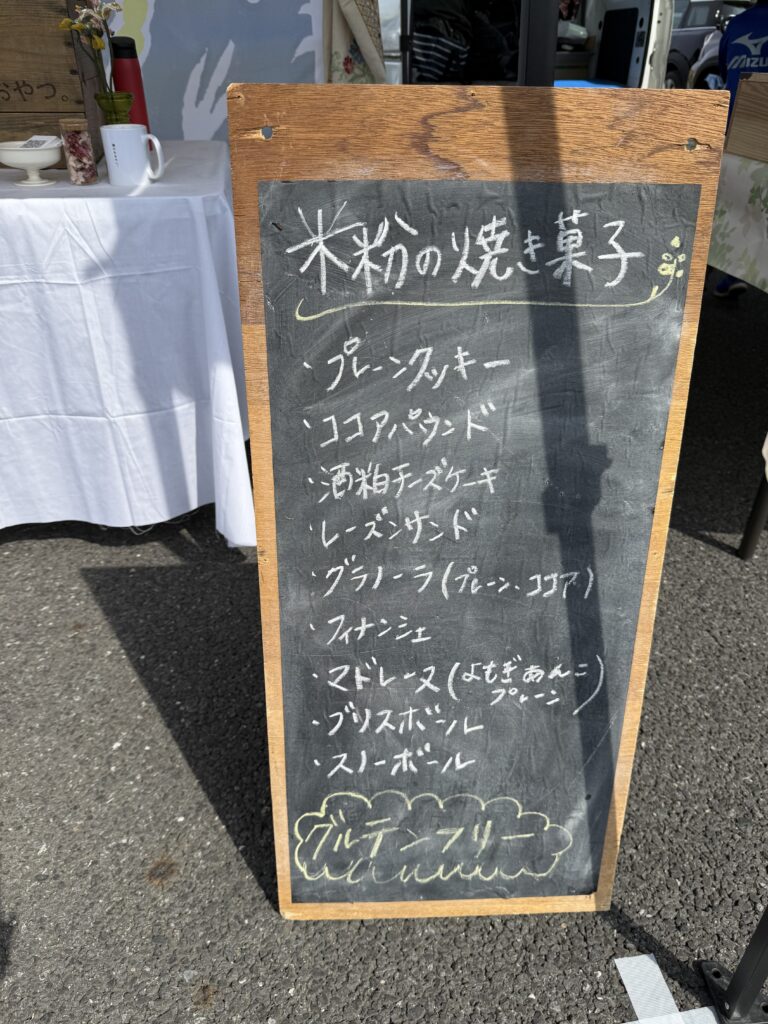 おやつ。
MIZU
米粉の焼き菓子
・プレーンクッキー
・ココアパウンド
・酒粕チーズケーキ
・レーズンサンド
・グラノーラ(プレーン・ココア)
・フィナンシェ
・マドレーヌ(よもぎあんこ
プレーン)
・ブリスボール
・スノーボール
グルテンフリー